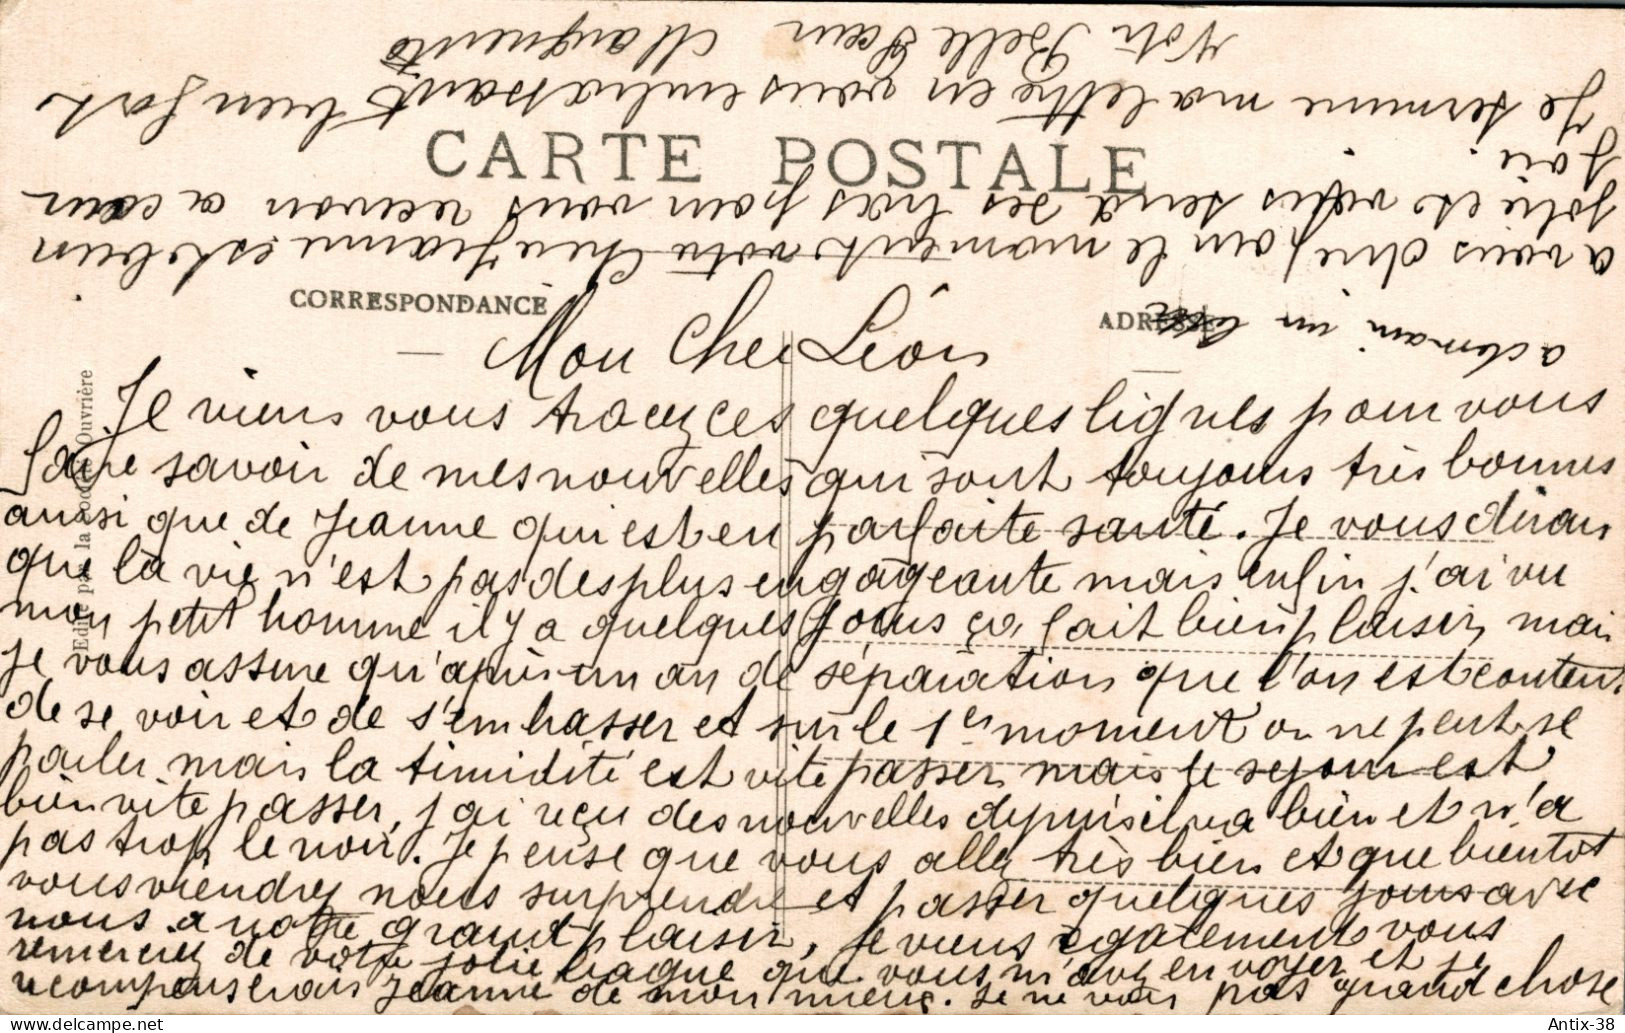 CARTE POSTALE
CORRESPONDANCE
ADRESSE
Edité par la Ouvrière
Mon Cher Léon
Je viens vous tracez ces quelques lignes pour vous
faire savoir de mes nouvelles qui sont toujours très bonnes
ausi que de Jeanne qui est en parfaite santé. Je vous dirais
que la vie n'est pas des plus engageante mais enfin j'ai vu
mon petit homme il y a quelques jours ça fait bien plaisir mais
je vous assure qu'après un an de séparation que l'on est content
de se voir et de s'embrasser et sur le 1er moment on ne peut se
parler mais la timidité est vite passer mais le sejour est
bien vite passer, j'ai reçu des nouvelles depuis il va bien et n'a
pas trop le noir. Je pense que vous allez très bien et que bientot
vous viendrez nous surprendre et passer quelques jours avec
nous a notre grand plaisir, je viens également vous
remerciez de votre jolie bague que vous m'avez envoyer et je
recompenserais Jeanne de mon mieux. Je ne vois pas grand chose
a vous dire pour le moment votre Chere Jeanne est bien
jolie et vous tend ses bras pour vous recevoir a coeur
joie.
Je termine ma lettre en vous embrassant bien fort
Votre Belle Soeur Marguerite
a demain un
Antix-38